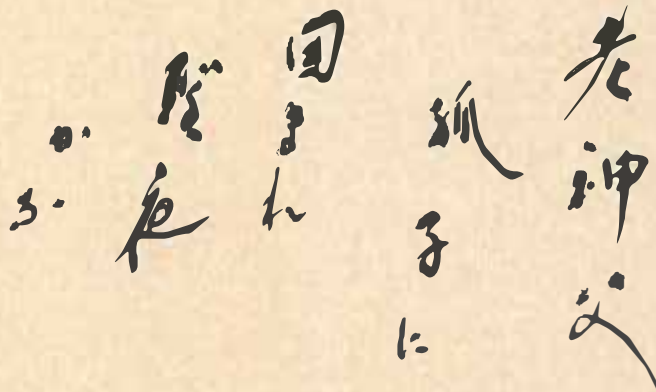 老神父
孤子に
囲まれ
聖夜
かな